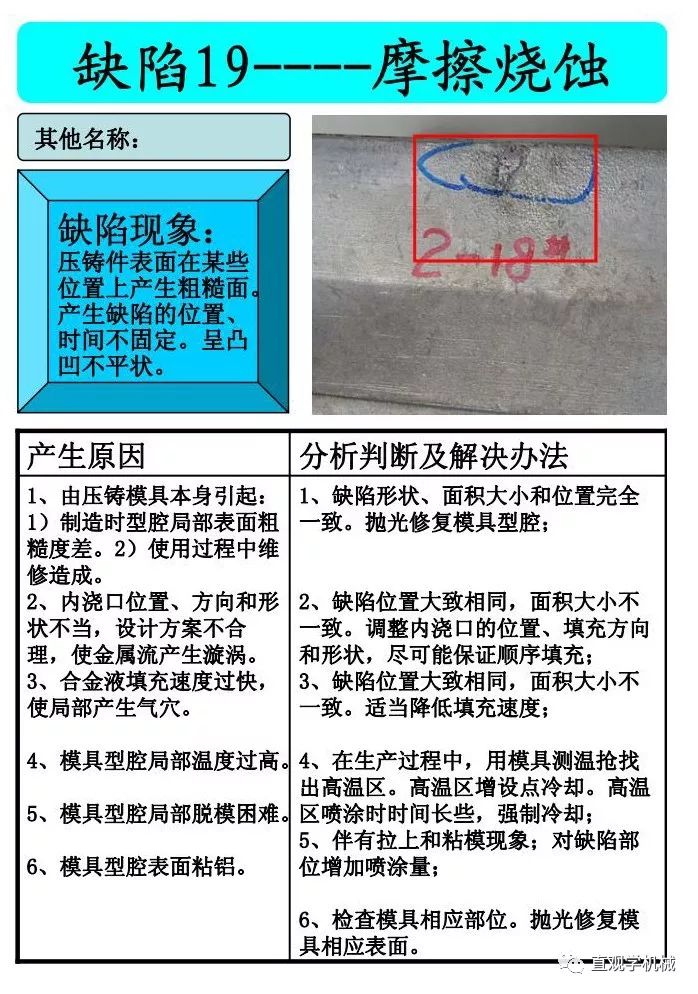 缺陷19----摩擦烧蚀
其他名称：
缺陷现象：
压铸件表面在某些
位置上产生粗糙面。
产生缺陷的位置、
时间不固定。呈凸
凹不平状。
2-18#
产生原因
1、由压铸模具本身引起：
1）制造时型腔局部表面粗
糙度差。2）使用过程中维
修造成。
2、内浇口位置、方向和形
状不当，设计方案不合
理，使金属流产生漩涡。
3、合金液填充速度过快，
使局部产生气穴。
4、模具型腔局部温度过高。
5、模具型腔局部脱模困难。
6、模具型腔表面粘铝。
分析判断及解决办法
1、缺陷形状、面积大小和位置完全
一致。抛光修复模具型腔；
2、缺陷位置大致相同，面积大小不
一致。调整内浇口的位置、填充方向
和形状，尽可能保证顺序填充；
3、缺陷位置大致相同，面积大小不
一致。适当降低填充速度；
4、在生产过程中，用模具测温抢找
出高温区。高温区增设点冷却。高温
区喷涂时时间长些，强制冷却；
5、伴有拉上和粘模现象；对缺陷部
位增加喷涂量；
6、检查模具相应部位。抛光修复模
具相应表面。
直观学机械